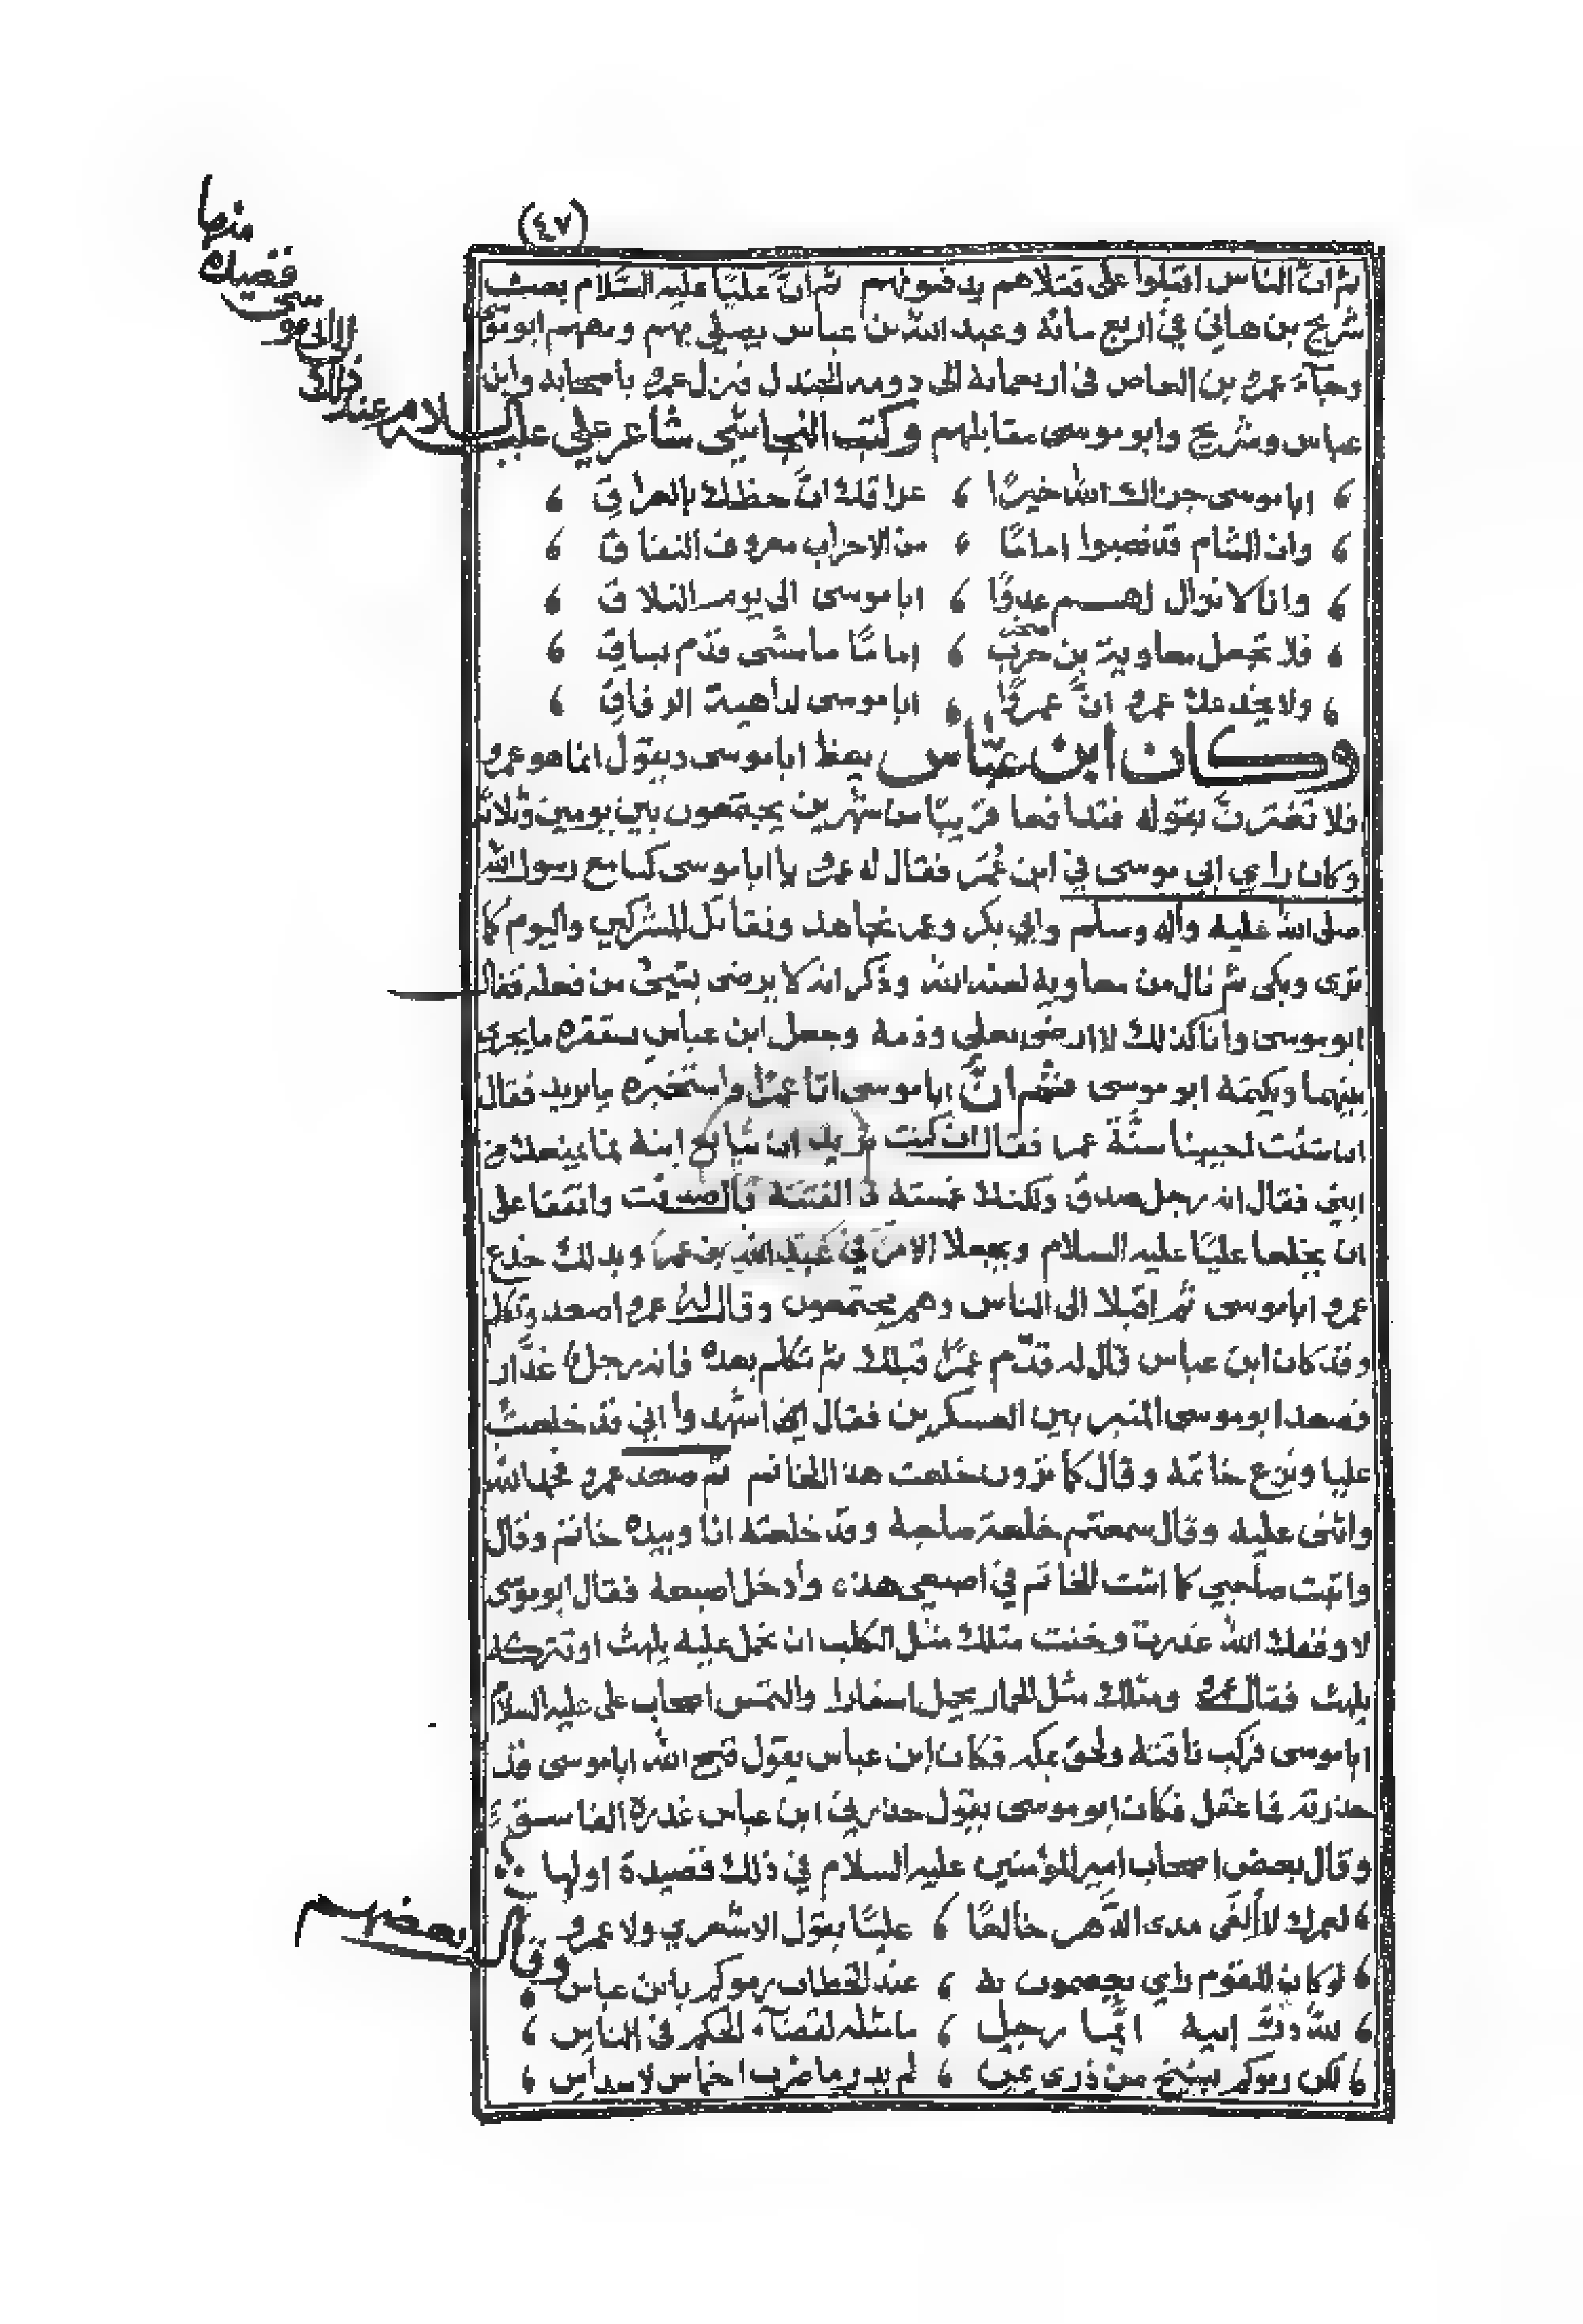 (٤٧)
ثم ان الناس اقبلوا على قتلاهم يدفنونهم ثم انّ عليّا عليه السّلام بعث
شريح بن هاني في اربع مائة وعبد الله بن عباس يصلي بهم ومعهم ابو موسى
وجآء عمرو بن العاص في اربعمائة الى دومه الجندل فنزل عمرو باصحابه وابن
عباس وشريح وابو موسى مقابلهم وكتب النجاشي شاعر علي عليه
السلام عند ذلك
الى ابي موسى
قصيدة
منها
ابا موسى جزاك الله خيرًا ، عراقك انّ حظك بالعراق ،
وان الشام قد نصبوا امامًا ، من الاحزاب معروف النفاق ،
وانا لا نزال لهم عدوًّا ، ابا موسى الى يوم التلاق ،
فلا تجعل معاوية بن حرب ، امامًا ما مشى قدم بساق ،
صخر
ولا يخدعك عمرو انّ عمروًا ، ابا موسى لداهية الرفاق ،
وكان ابن عبّاس يعظ ابا موسى ويقول انما هو عمرو
فلا تغترن بقوله فتدافعا قريبًا من شهرين يجتمعون بين يومين وثلاثه
وكان راي ابي موسى في ابن عُمَر فقال له عمرو يا ابا موسى كنا مع رسول الله
صلى الله عليه وآله وسلم وابي بكر وعمر نجاهد ونقاتل المشركين واليوم كما
ترى وبكى ثم نال من معاويه لعنه الله وذكر انه لا يرضى بشيئ من فعله فقال
ابو موسى وانا كذلك لا ارضى بعلي وذمه وجعل ابن عباس يستقره ما يجرى
بينهما ويكتمه ابو موسى ثم انّ ابا موسى اتا عمرًا واستخبره ما يريد فقال
ان شئت احيينا سنّة عمر فقال ان كنت تريد ان تبايع ابنه فما يمنعك من
ابني فقال انه رجل صدق ولكنك غمسته في الفتنة قال صدقت واتفقا على
ان يخلعا عليّا عليه السلام ويجعلا الامر في عبد الله بن عمر وبذلك خدع
عمرو ابا موسى ثم اقبلا الى الناس وهم يجتمعون وقال له عمرو اصعد وتكلم
وقد كان ابن عباس قال له قدّم عمرًا قبلك ثم تكلم بعده فانه رجل غدّار
فصعد ابو موسى المنبر بين العسكرين فقال اشهدوا اني قد خلعت
عليا ونزع خاتمه وقال كما ترون خلعت هذا الخاتم ثم صعد عمرو فحمد الله
واثنى عليه وقال سمعتم خلعة صاحبه وقد خلعته انا وبيده خاتم وقال
واثبت صاحبي كما اثبت الخاتم في اصبعي هذه وأدخل اصبعه فقال ابو موسى
لا وفقك الله غدرت وخنت مثلك مثل الكلب ان تحمل عليه يلهث او تتركه
يلهث فقال عمرو ومثلك مثل الحمار يحمل اسفارا والتمس اصحاب علي عليه السلام
ابا موسى فركب ناقته ولحق بمكه فكان ابن عباس يقول قبح الله ابا موسى قد
حذرته فما عقل فكان ابو موسى يقول حذرني ابن عباس غدرة الفاسق
وقال بعض اصحاب امير المؤمنين عليه السلام في ذلك قصيدة اولها
لعمرك لا ألفى مدى الدّهر خالعًا ، عليًا بقول الاشعري ولا عمرو
وقال بعضهم
لو كان للقوم راي يعصمون به ، عند الخطاب رموكم بابن عباس ،
للّه درّ ابيه ايّما رجل ، ما مثله لقضآء الحكم في الناس ،
لكن رموكم بشيخ من ذوى يمن ، لم يدر ما ضرب اخماس لاسداس ،